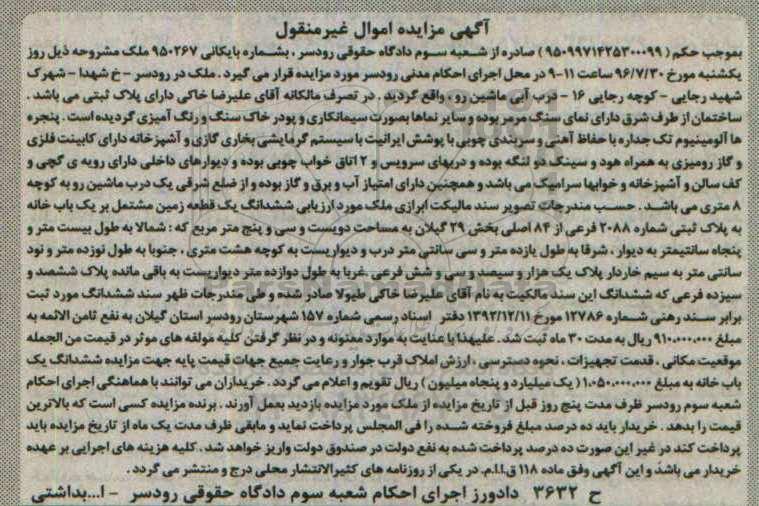 آگهی مزایده اموال غیرمنقول
بموجب حکم ( ۹۵۰۹۹۷۱۴۲۵۳۰۰۰۹۹ ) صادره از شعبه سوم دادگاه حقوقی رودسر ، بشماره بایگانی ۹۵۰۲۶۷ ملک مشروحه ذیل روز
یکشنبه مورخ ۹۶/۷/۳۰ ساعت ۱۱-۹ در محل اجرای احکام مدنی رودسر مورد مزایده قرار می گیرد . ملک در رودسر - خ شهدا - شهرک
شهید رجایی - کوچه رجایی ۱۶ - درب آبی ماشین رو ، واقع گردید . در تصرف مالکانه آقای علیرضا خاکی دارای پلاک ثبتی می باشد .
ساختمان از طرف شرق دارای نمای سنگ مرمر بوده و سایر نماها بصورت سیمانکاری و پودر خاک سنگ و رنگ آمیزی گردیده است . پنجره
ها آلومینیوم تک جداره با حفاظ آهنی و سربندی چوبی با پوشش ایرانیت با سیستم گرمایشی بخاری گازی و آشپزخانه دارای کابینت فلزی
و گاز رومیزی به همراه هود و سینک دو لنگه بوده و دربهای سرویس و ۲ اتاق خواب چوبی بوده و دیوارهای داخلی دارای رویه ی گچی و
کف سالن و آشپزخانه و خوابها سرامیک می باشد و همچنین دارای امتیاز آب و برق و گاز بوده و از ضلع شرقی یک درب ماشین رو به کوچه
۸ متری می باشد . حسب مندرجات تصویر سند مالیکت ابرازی ملک مورد ارزیابی ششدانگ یک قطعه زمین مشتمل بر یک باب خانه
به پلاک ثبتی شماره ۲۰۸۸ فرعی از ۸۴ اصلی بخش ۲۹ گیلان به مساحت دویست و سی و پنج متر مربع که : شمالا به طول بیست متر و
پنجاه سانتیمتر به دیوار ، شرقا به طول یازده متر و سی سانتی متر درب و دیواریست به کوچه هشت متری ، جنوبا به طول نوزده متر و نود
سانتی متر به سیم خاردار پلاک یک هزار و سیصد و سی و شش فرعی .غربا به طول دوازده متر دیواریست به باقی مانده پلاک ششصد و
سیزده فرعی که ششدانگ این سند مالکیت به نام آقای علیرضا خاکی طیولا صادر شده و طی مندرجات ظهر سند ششدانگ مورد ثبت
برابر سند رهنی شماره ۱۲۷۸۶ مورخ ۱۳۹۲/۱۲/۱۱ دفتر اسناد رسمی شماره ۱۵۷ شهرستان رودسر استان گیلان به نفع ثامن الائمه به
مبلغ ۹۱۰،۰۰۰،۰۰۰ ریال به مدت ۳۰ ماه ثبت شد . علیهذا با عنایت به موارد معنونه و در نظر گرفتن کلیه مولفه های موثر در قیمت من الجمله
موقعیت مکانی ، قدمت تجهیزات ، نحوه دسترسی ، ارزش املاک قرب جوار و رعایت جمیع جهات قیمت پایه جهت مزایده ششدانگ یک
باب خانه به مبلغ ۱،۰۵۰،۰۰۰،۰۰۰ ( یک میلیارد و پنجاه میلیون ) ریال تقویم و اعلام می گردد . خریداران می توانند با هماهنگی اجرای احکام
شعبه سوم رودسر ظرف مدت پنج روز قبل از تاریخ مزایده از ملک مورد مزایده بازدید بعمل آورند . برنده مزایده کسی است که بالاترین
قیمت را بدهد . خریدار باید ده درصد مبلغ فروخته شده را فی المجلس پرداخت نماید و مابقی ظرف مدت یک ماه از تاریخ مزایده باید
پرداخت کند در غیر این صورت ده درصد پرداخت شده به نفع دولت در صندوق دولت واریز خواهد شد . کلیه هزینه های اجرایی بر عهده
خریدار می باشد و این آگهی وفق ماده ۱۱۸ ق.ا.ا.م. در یکی از روزنامه های کثیرالانتشار محلی درج و منتشر می گردد .
ح ۳۶۳۲ دادورز اجرای احکام شعبه سوم دادگاه حقوقی رودسر - ا...بداشتی